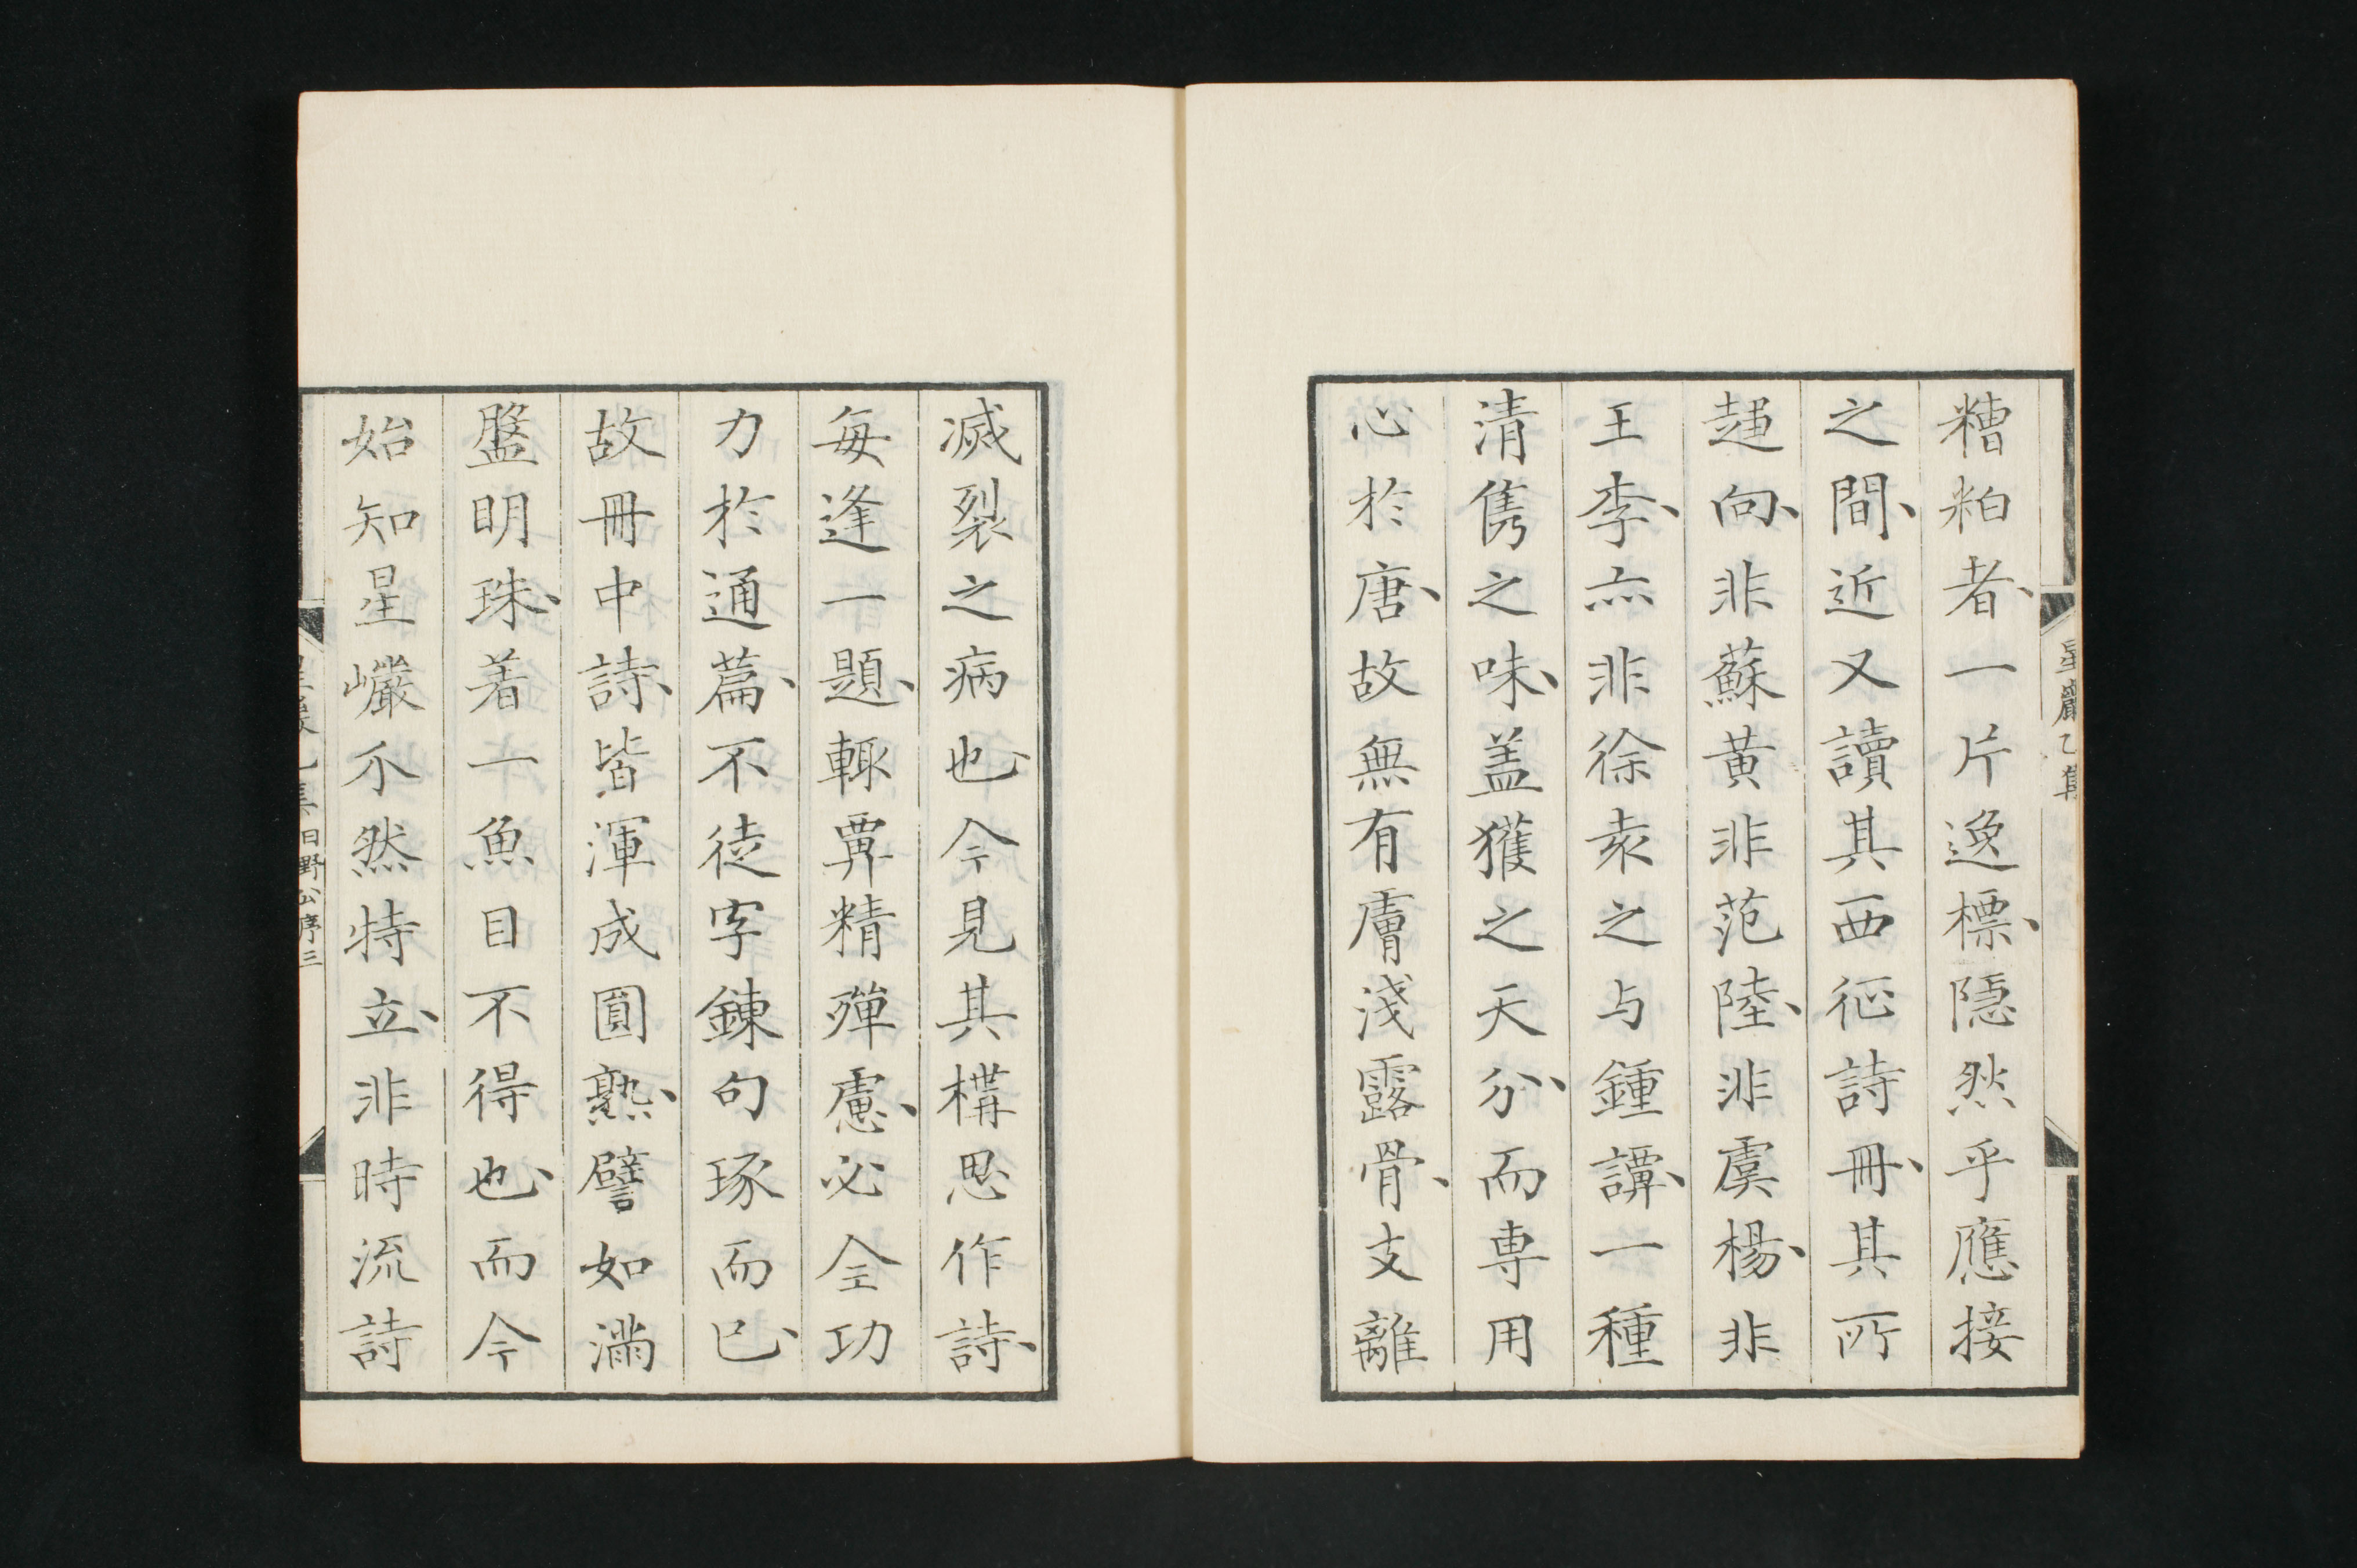 糟粕者、一片逸標、隠然乎應接
之間、近又讀其西征詩冊、其所
趨向、非蘇黃非范陸、非虞楊、非
王李、亦非徐袁之与鍾譚、一種
清雋之味、盖獲之天分、而専用
心於唐、故無有膚淺露骨、支離
滅裂之病也、今見其構思作詩、
每逢一題、輒覃精殫慮、必全功
力於通篇、不徒字鍊句琢而已、
故冊中詩、皆渾成圓熟、譬如滿
盤明珠、着一魚目不得也、而今
始知星巖不然特立、非時流詩
星巖乙集
星巖乙集 日野公序 三